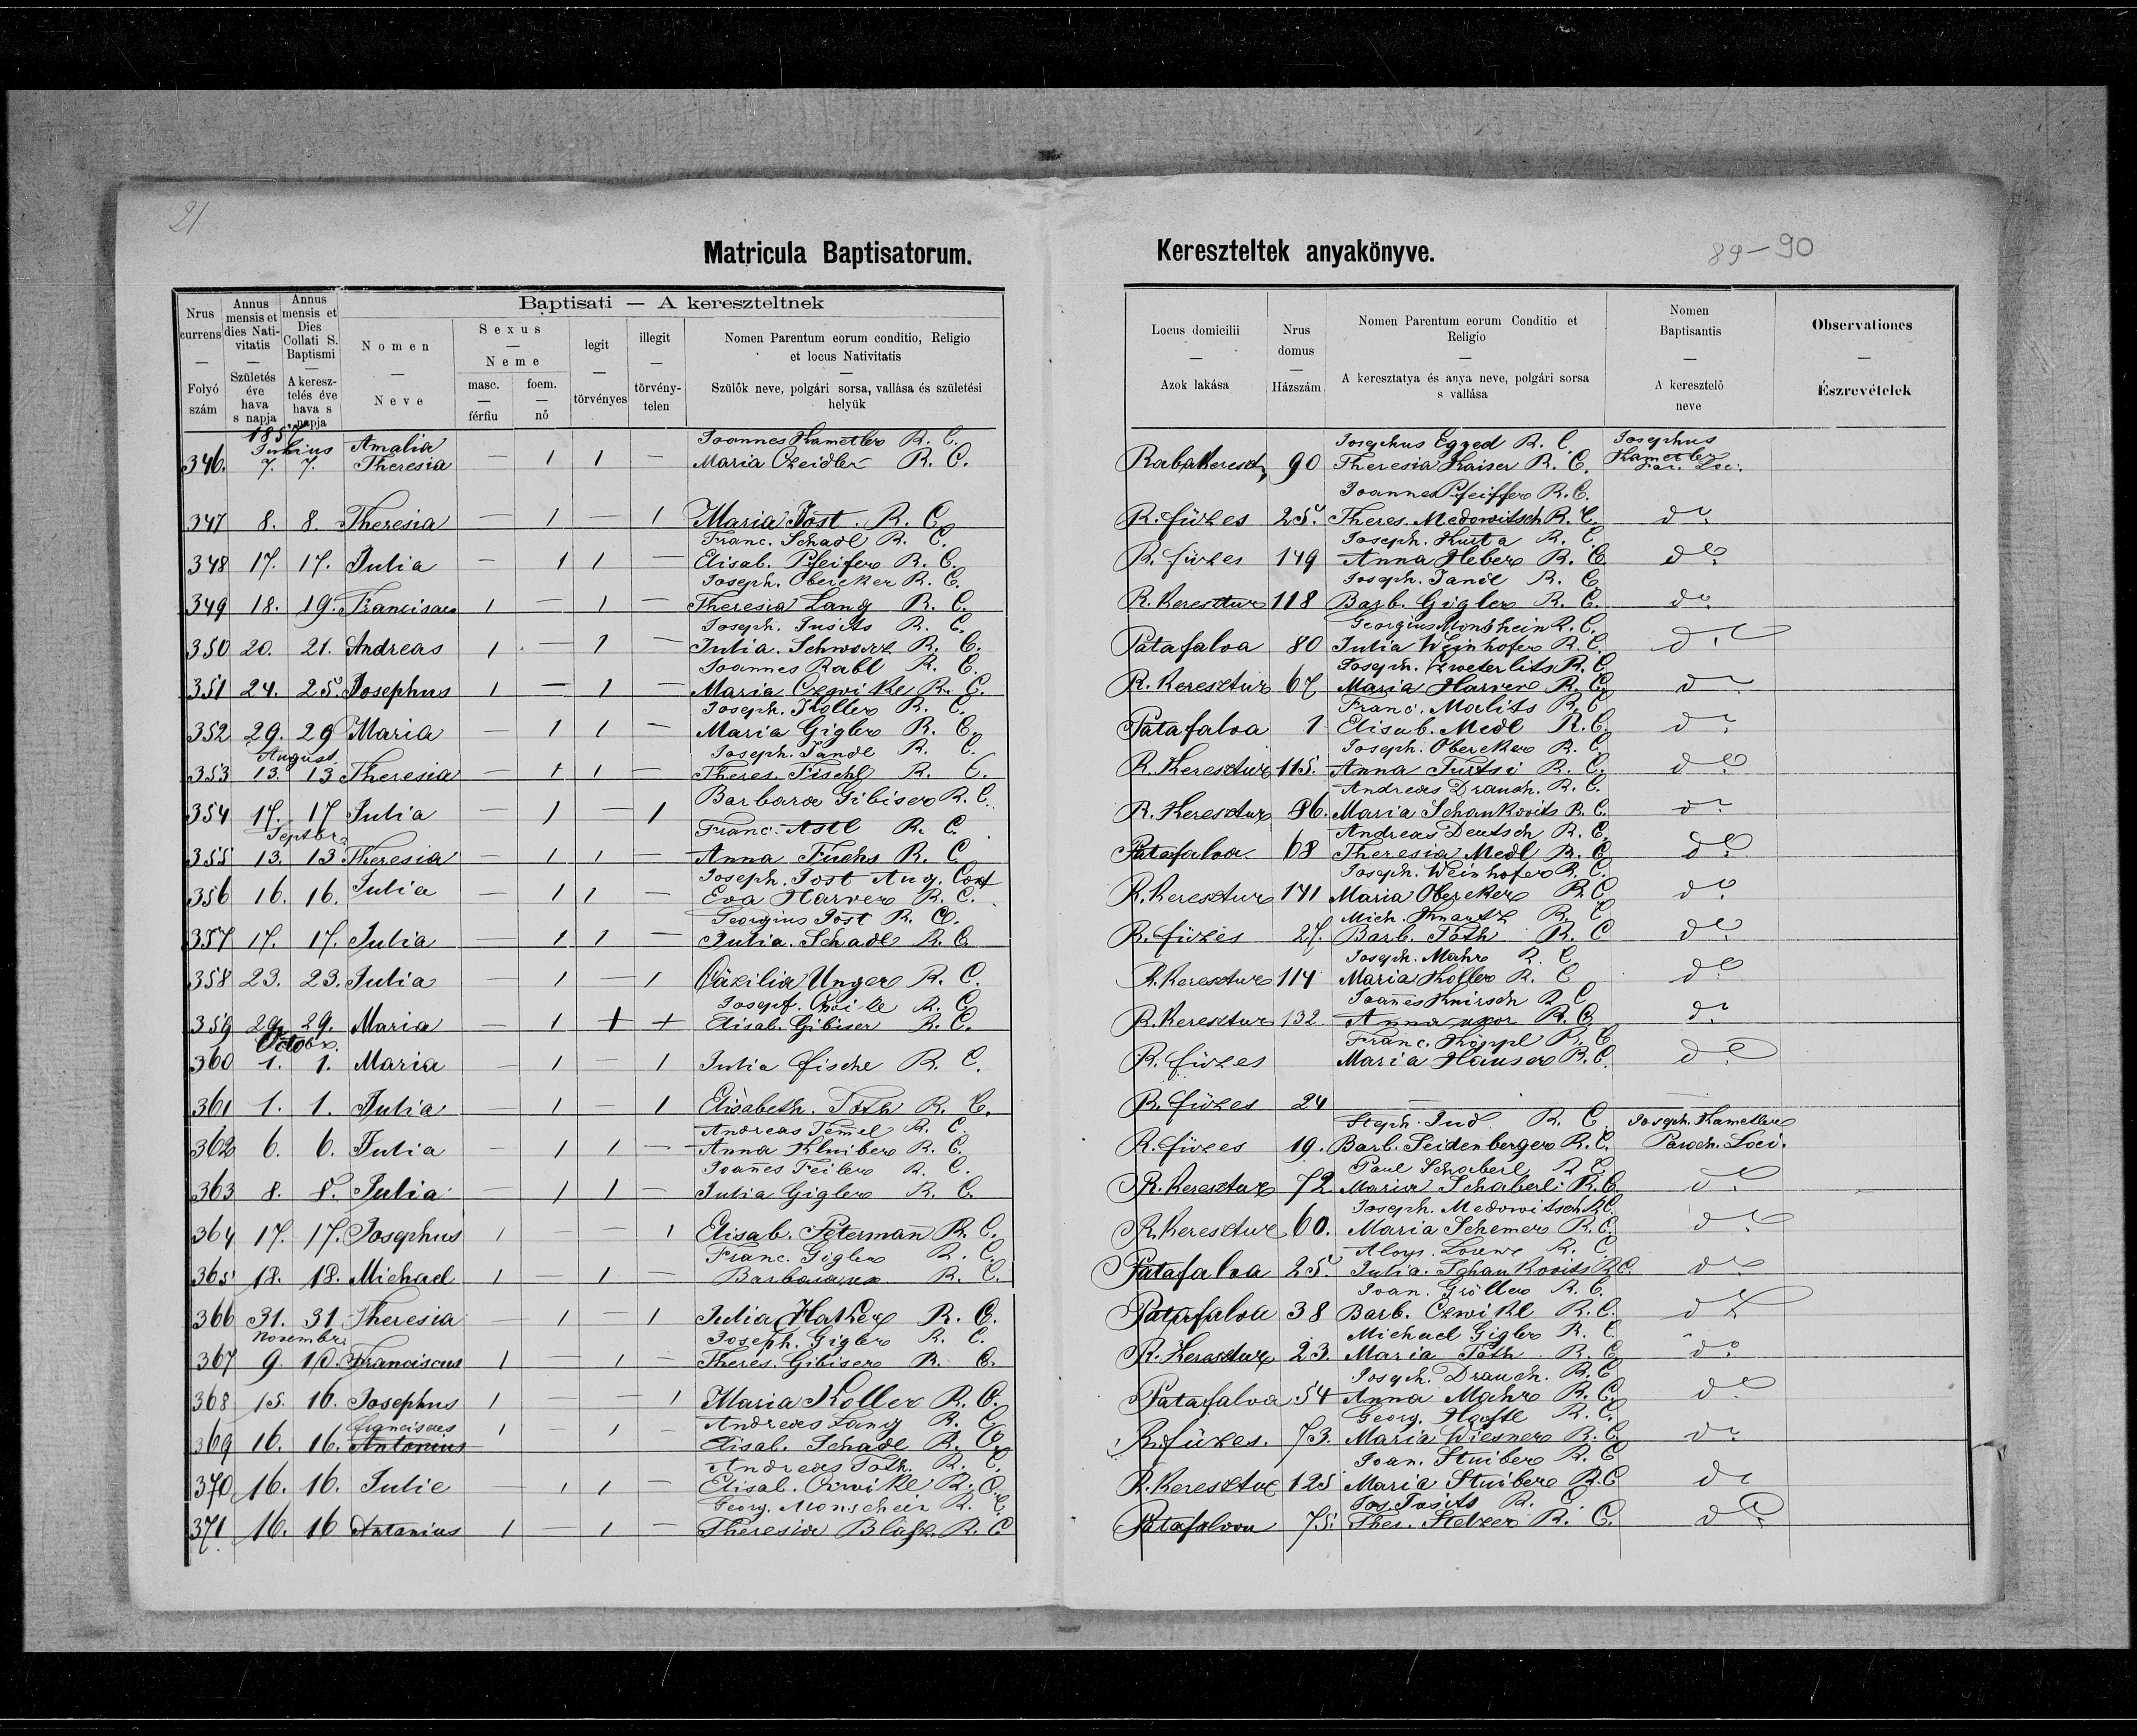 21
Matricula Baptisatorum. Kereszteltek anyakönyve. 89-90
Nrus currens — Folyó szám
Annus mensis et dies Nativitatis — Születés éve hava s napja
Annus mensis et Dies Collati S. Baptismi — A keresztelés éve hava s napja
Baptisati — A kereszteltnek
Nomen — Neve
Sexus — Neme
masc. — férfiu
foem. — nő
legit — törvényes
illegit — törvénytelen
Nomen Parentum eorum conditio, Religio et locus Nativitatis — Szülők neve, polgári sorsa, vallása és születési helyük
Locus domicilii — Azok lakása
Nrus domus — Házszám
Nomen Parentum eorum Conditio et Religio — A keresztatya és anya neve, polgári sorsa s vallása
Nomen Baptisantis — A keresztelő neve
Observationes — Észrevételek
1857
Julius Amalia Joannes Kametler R. C. Josephus Egyed R. C. Josephus
346. 7. 7. Theresia — 1 1 — Maria Czeidler R. C. Rabakereszt, 90 Theresia Kaiser R. C. Kametler Par. Loc.
Joannes Pfeiffer R. C.
347 8. 8. Theresia — 1 — 1 Maria Jost. R. C. R. füzes 25. Theres. Medowitsch R. C. do
Franc. Schadl R. C. Joseph. Kurta R. C.
348 17. 17. Julia — 1 1 — Elisab. Pfeifer R. C. R. füzes 149 Anna Heber R. C. do
Joseph. Obereker R. C. Joseph. Jandl R. C.
349 18. 19. Franciscus 1 — 1 — Theresia Lang R. C. R. Keresztur 118 Barb. Gigler R. C. do
Joseph. Jusits R. C. Georgius Monshein R. C.
350 20. 21. Andreas 1 — 1 — Julia. Schwarz R. C. Patafalva 80 Julia Weinhofer R. C. do
Joannes Rabl R. C. Joseph. Zweterlits R. C.
351 24. 25. Josephus 1 — 1 — Maria Czwikl R. C. R. Keresztur 67 Maria Harrer R. C. do
Joseph. Koller R. C. Franc. Malits R. C.
352 29. 29 Maria — 1 1 — Maria Gigler R. C. Patafalva 1 Elisab. Medl R. C. do
August. Joseph. Jandl R. C. Joseph. Obereker R. C.
353 13. 13 Theresia — 1 1 — Theres. Fischl R. C. R. Keresztur 115. Anna Turtsi R. C. do
Barbara Gibiser R. C. Andreas Drauch. R. C.
354 17. 17 Julia — 1 — 1 R. Keresztur 86. Maria Schankovits R. C. do
Septbr. Franc. Astl R. C. Andreas Deutsch R. C.
355 13. 13 Theresia — 1 1 — Anna Fuchs R. C. Patafalva 68 Theresia Medl R. C. do
Joseph. Jost Aug. Conf Joseph. Weinhofer R. C.
356 16. 16. Julia — 1 1 — Eva Harrer R. C. R. Keresztur 141 Maria Obereker R. C. do
Georgius Jost R. C. Mich. Knautz R. C.
357 17. 17. Julia — 1 1 — Julia. Schadl R. C. R. füzes 27. Barb. Toth R. C. do
Joseph. Mahr R. C.
358 23. 23. Julia — 1 — 1 Cäzilia Unger R. C. R. Keresztur 114 Maria Koller R. C. do
Josef. R. C. Joañes Knirsch R. C.
359 29. 29. Maria — 1 1 + Elisab. Gibiser R. C. R. Keresztur 132 Anna uxor R. C. do
Octobr. Franc. Köppl R. C.
360 1. 1. Maria — 1 — 1 Julia fischl R. C. R. füzes Maria Hauser R. C. do
361 1. 1. Julia — 1 — 1 Elisabeth. Toth R. C. R. füzes 24 —
Andreas Temel R. C. Steph. Jud R. C. Joseph. Kametler
362 6. 6. Julia — 1 1 — Anna Kluiber R. C. R. füzes 19. Barb. Seidenberger R. C. Paroch. Loci.
Joañes Feiler R. C. Paul Schaberl R. C.
363 8. 8. Julia — 1 1 — Julia Gigler R. C. R. Keresztur 72 Maria Schaberl R. C. do
Joseph. Medowitsch R. C.
364 17. 17. Josephus 1 — — 1 Elisab. Petermañ R. C. R. Keresztur 60. Maria Schemer R. C. do
Franc. Gigler R. C. Aloys. R. C.
365 18. 18. Michael 1 — 1 — Barbara ux. R. C. Patafalva 25. Julia. Schankovits R. C. do
Joan. Gröller R. C.
366 31. 31 Theresia — 1 — 1 Julia R. C. Patafalva 38 Barb. Czwikl R. C. do
Novembr. Joseph. Gigler R. C. Michael Gigler R. C.
367 9. 10. Franciscus 1 — 1 — Theres. Gibiser R. C. R. Keresztur 23. Maria Toth R. C. do
Joseph. Drauch. R. C.
368 15. 16. Josephus 1 — — 1 Maria Koller R. C. Patafalva 54 Anna Mahr R. C. do
Franciscus Andreas Lang R. C. Georg. R. C.
369 16. 16. Antonius 1 — 1 — Elisab. Schadl R. C. R. füzes. 73. Maria Wiesner R. C. do
Andreas Toth. R. C. Joan. Stuiber R. C.
370 16. 16. Julie — 1 1 — Elisab. Czwikl R. C. R. Keresztur 125 Maria Stuiber R. C. do
Georg. Monschein R. C. Jos. Jusits R. C.
371 16. 16 Antonius 1 — 1 — Theresia R. C. Patafalva 75. Thes. Stelzer R. C. do